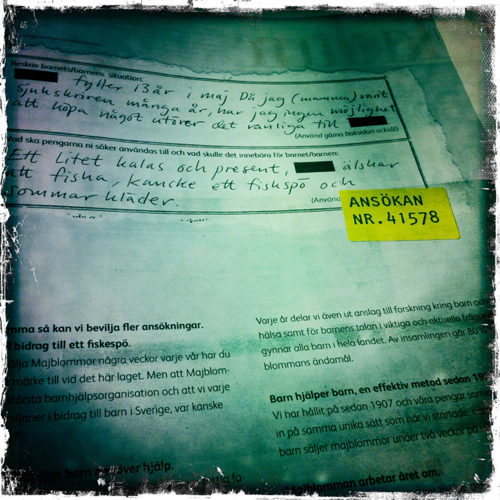 Beskriv barnets/barnens situation:
fyller 13 år i maj. Då jag (mamma) varit
sjukskriven många år, har jag ingen möjlighet
att köpa något utöver det vanliga till
(Använd gärna baksidan också)
Vad ska pengarna ni söker användas till och vad skulle det innebära för barnet/barnen:
Ett litet kalas och present, älskar
att fiska, kanske ett fiskspö och
sommar kläder.
(Använd
ANSÖKAN
NR. 41578
så kan vi bevilja fler ansökningar.
bidrag till ett fiskespö.
Majblommor några veckor varje vår har du
märke till vid det här laget. Men att Majblom-
barnhjälpsorganisation och att vi varje
i bidrag till barn i Sverige, var kanske
barn behöver hjälp.
Varje år delar vi även ut anslag till forskning kring barn och
hälsa samt för barnens talan i viktiga och aktuella
gynnar alla barn i hela landet. Av insamlingen går 80
blommans ändamål.
Barn hjälper barn, en effektiv metod sedan
Vi har hållit på sedan 1907 och våra pengar
in på samma unika sätt som när vi startade:
barn säljer majblommor under två veckor på
Majblomman arbetar året om.